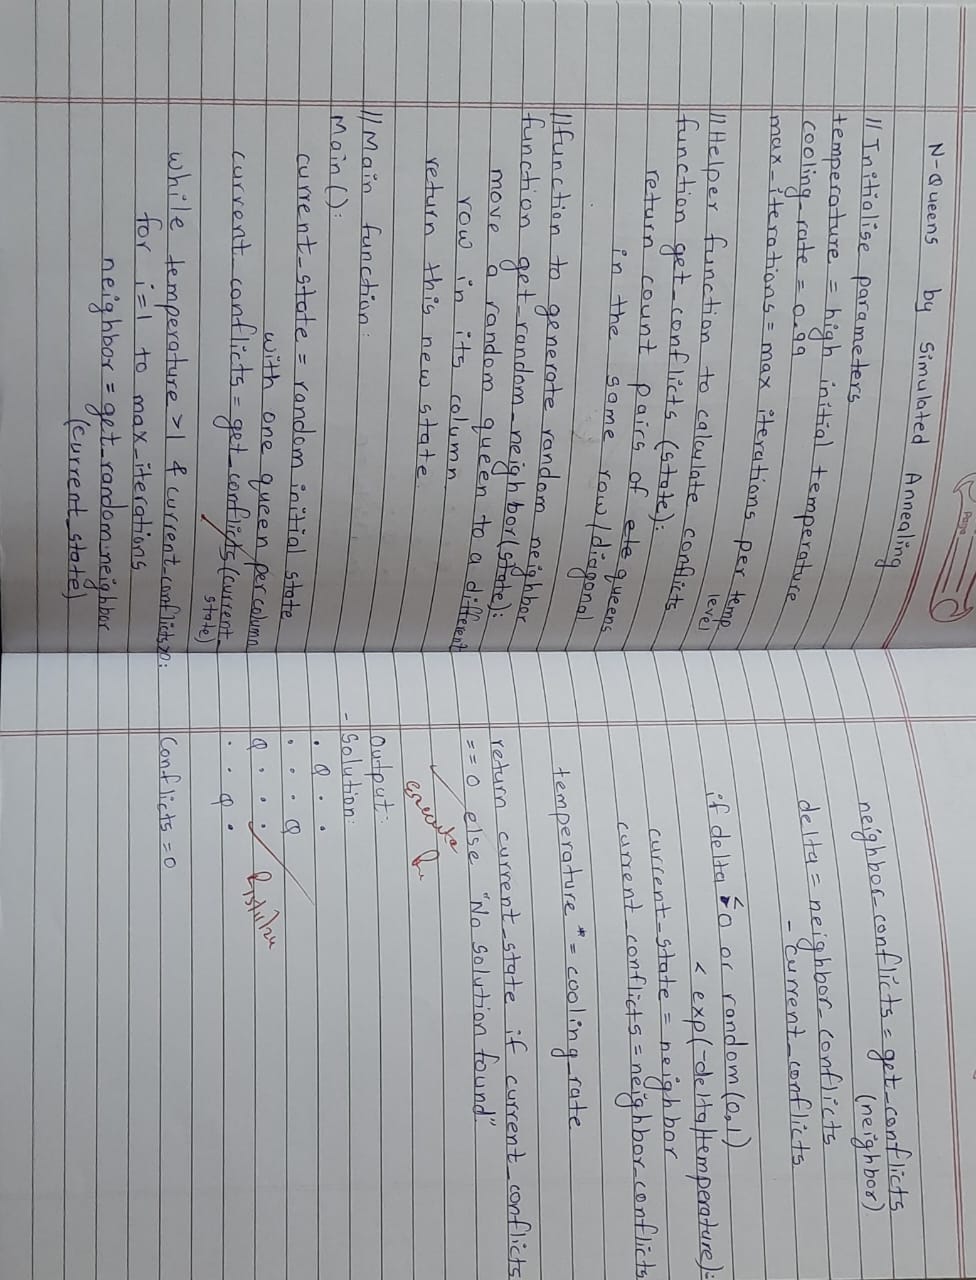 Page
N-Queens by Simulated Annealing
// Initialise parameters
temperature = high initial temperature
cooling_rate = 0.99
max_iterations = max iterations per temp
level
// Helper function to calculate conflicts
function get_conflicts (state):
return count pairs of queens
in the same row/diagonal
// function to generate random neighbor
function get_random_neighbor(state):
move a random queen to a different
row in its column
return this new state.
// Main function:
Main():
current_state = random initial state
with one queen per column
current_conflicts = get_conflicts (current_
state)
while temperature > 1 & current_conflicts > 0:
for i=1 to max_iterations
neighbor = get_random_neighbor
(current_state)
neighbor_conflicts = get_conflicts
(neighbor)
delta = neighbor_conflicts
- current_conflicts
if delta < 0 or random(0,1)
< exp(-delta/temperature):
current_state = neighbor
current_conflicts = neighbor_conflicts
temperature *= cooling_rate
return current_state if current_conflicts
== 0 else "No solution found"
execute
Output:
- Solution:
. Q . .
. . . Q
Q . . .
. . Q .
Conflicts = 0